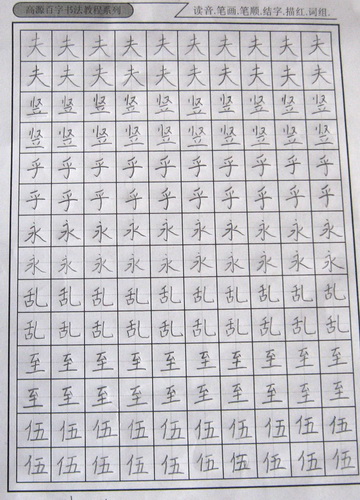 高源百字书法教程系列
读音.笔画.笔顺.结字.描红.词组.
夫 夫 夫 夫 夫 夫 夫 夫 夫 夫
夫 夫 夫 夫 夫 夫 夫 夫 夫 夫
竖 竖 竖 竖 竖 竖 竖 竖 竖 竖
竖 竖 竖 竖 竖 竖 竖 竖 竖 竖
乎 乎 乎 乎 乎 乎 乎 乎 乎 乎
乎 乎 乎 乎 乎 乎 乎 乎 乎 乎
永 永 永 永 永 永 永 永 永 永
永 永 永 永 永 永 永 永 永 永
乱 乱 乱 乱 乱 乱 乱 乱 乱 乱
乱 乱 乱 乱 乱 乱 乱 乱 乱 乱
至 至 至 至 至 至 至 至 至 至
至 至 至 至 至 至 至 至 至 至
伍 伍 伍 伍 伍 伍 伍 伍 伍 伍
伍 伍 伍 伍 伍 伍 伍 伍 伍 伍